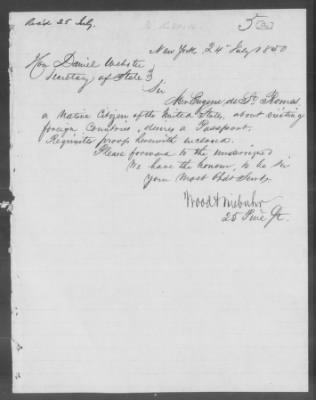 Rec'd 25 July.
New York 24th July 1850
Hon Daniel Webster
Secretary of State
Sir
Mr Eugene de St Thomas,
a Native Citizen of the United States, about visiting
foreign Countries, desires a Passport.
Requisite proofs herewith inclosed.
Please forward to the undersigned
We have the honour, to be Sir
Your Most Obdt Servts.
Wood & Niebuhr
25 Pine St.